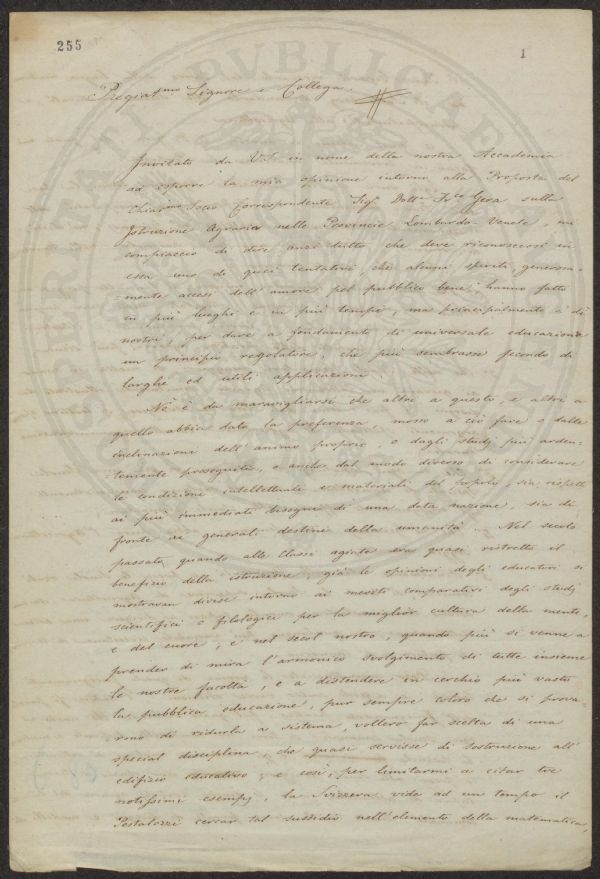 255
1
Pregiatmo Signore e Collega
Invitato da V.S. in nome della nostra Accademia
ad esporre la mia opinione intorno alla Proposta del
Chiarmo Socio Corrispondente Sigr Dottr Gera sulla
Istruzione Agraria nelle Provincie Lombardo-Venete, mi
compiaccio di dire anzi tutto che deve riconoscersi in
essa uno di quei tentativi che alcuni spiriti, generosa-
=mente accesi dell'amore pel pubblico bene, hanno fatto
in più luoghi e in più tempi, ma principalmente a' dì
nostri, per dare a fondamento di universale educazione
un principio regolatore, che più sembrasse fecondo di
larghe ed utili applicazioni.
Nè è da maravigliarsi che altri a questo, e altri a
quello abbia dato la preferenza, mosso a ciò fare o dalle
inclinazioni dell'animo proprio, o dagli studj più arden-
temente proseguiti, o anche dal modo diverso di considerare
le condizioni intellettuali e materiali del popolo, sia rispetto
ai più immediati bisogni di una data nazione, sia di
fronte ai generali destini della umanità. Nel secolo
passato, quando alle classi agiate era quasi ristretto il
benefizio della istruzione, già le opinioni degli educatori si
mostravan divise intorno ai meriti comparativi degli studj
scientifici e filologici per la miglior cultura della mente,
e del cuore; e nel secol nostro, quando più si venne a
prender di mira l'armonico svolgimento di tutte insieme
le nostre facoltà, e a distendere in cerchio più vasto
la pubblica educazione, pur sempre coloro che si prova-
rono di ridurla a sistema, vollero far scelta di una
special disciplina, che quasi servisse di sostruzione all'
edifizio educativo; e così, per limitarmi a citar tre
notissimi esempj, la Svizzera vide ad un tempo il
Pestalozzi cercar tal sussidio nell'elemento della matematica,